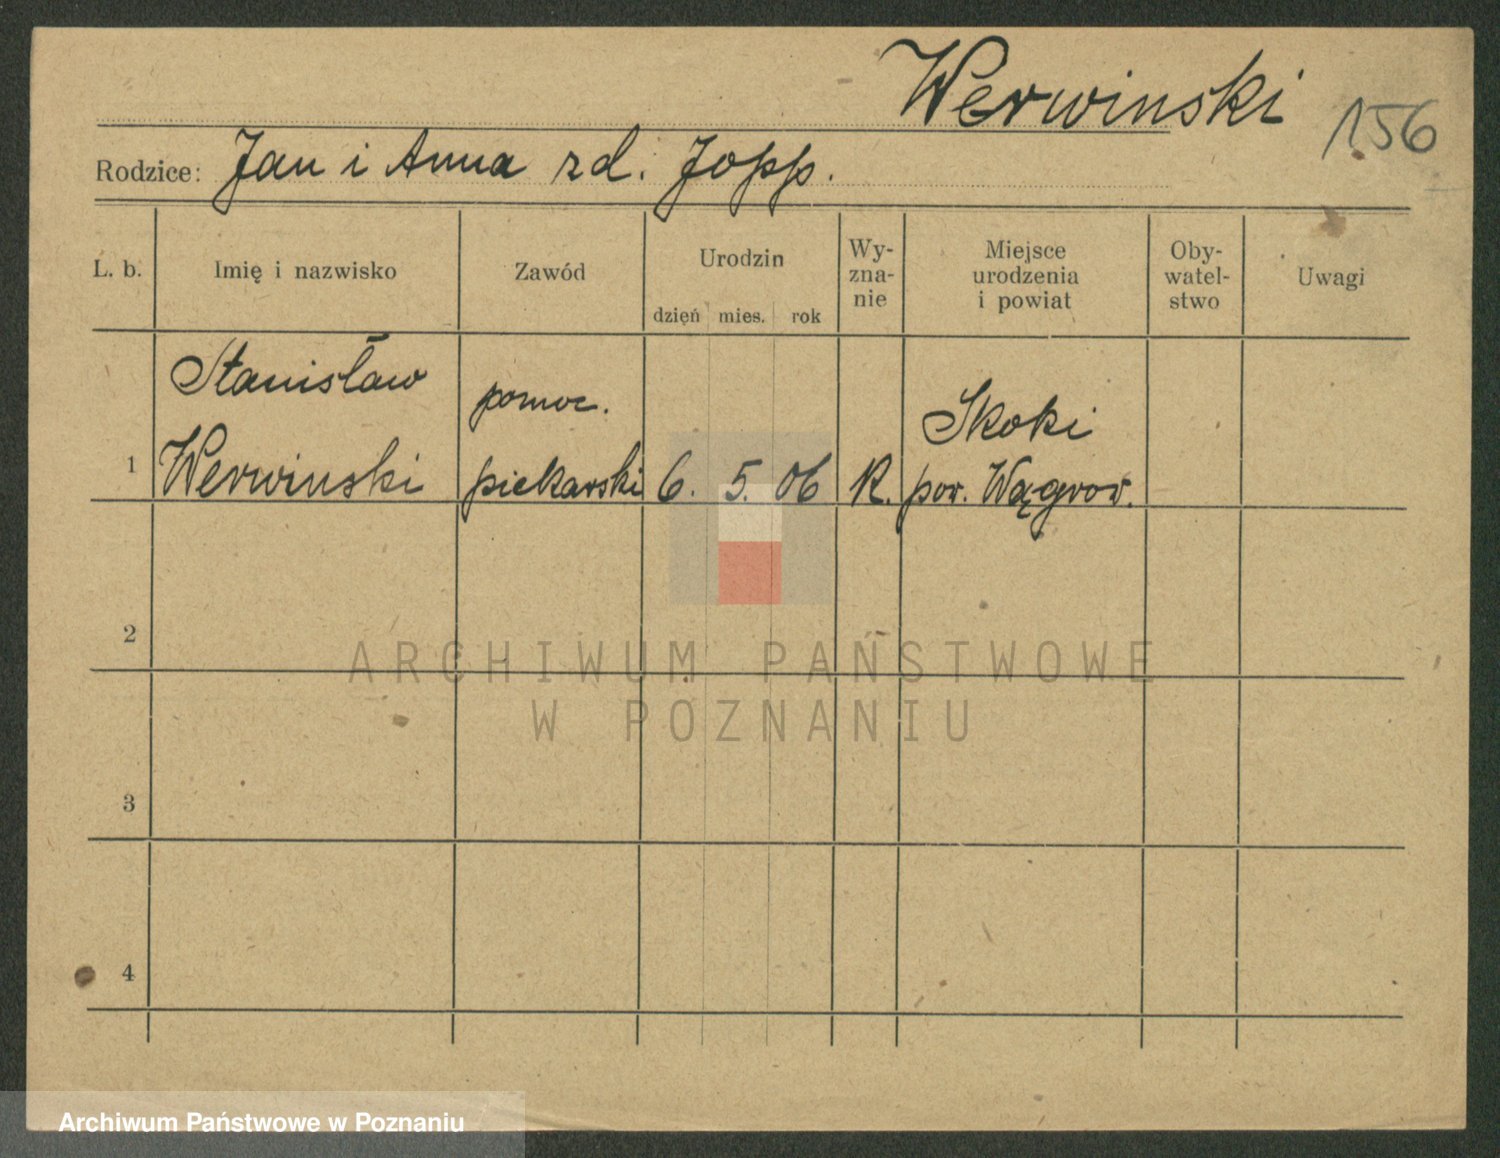 Werwinski
156
Rodzice: Jan i Anna zd. Jopp.
L. b.
Imię i nazwisko
Zawód
Urodzin
dzięń mies. rok
Wy-
zna-
nie
Miejsce
urodzenia
i powiat
Oby-
watel-
stwo
Uwagi
1
Stanisław
Werwinski
pomoc.
piekarski
6. 5. 06
R.
Skoki
pow. Wągrow.
2
3
4
ARCHIWUM PAŃSTWOWE
W POZNANIU
Archiwum Państwowe w Poznaniu